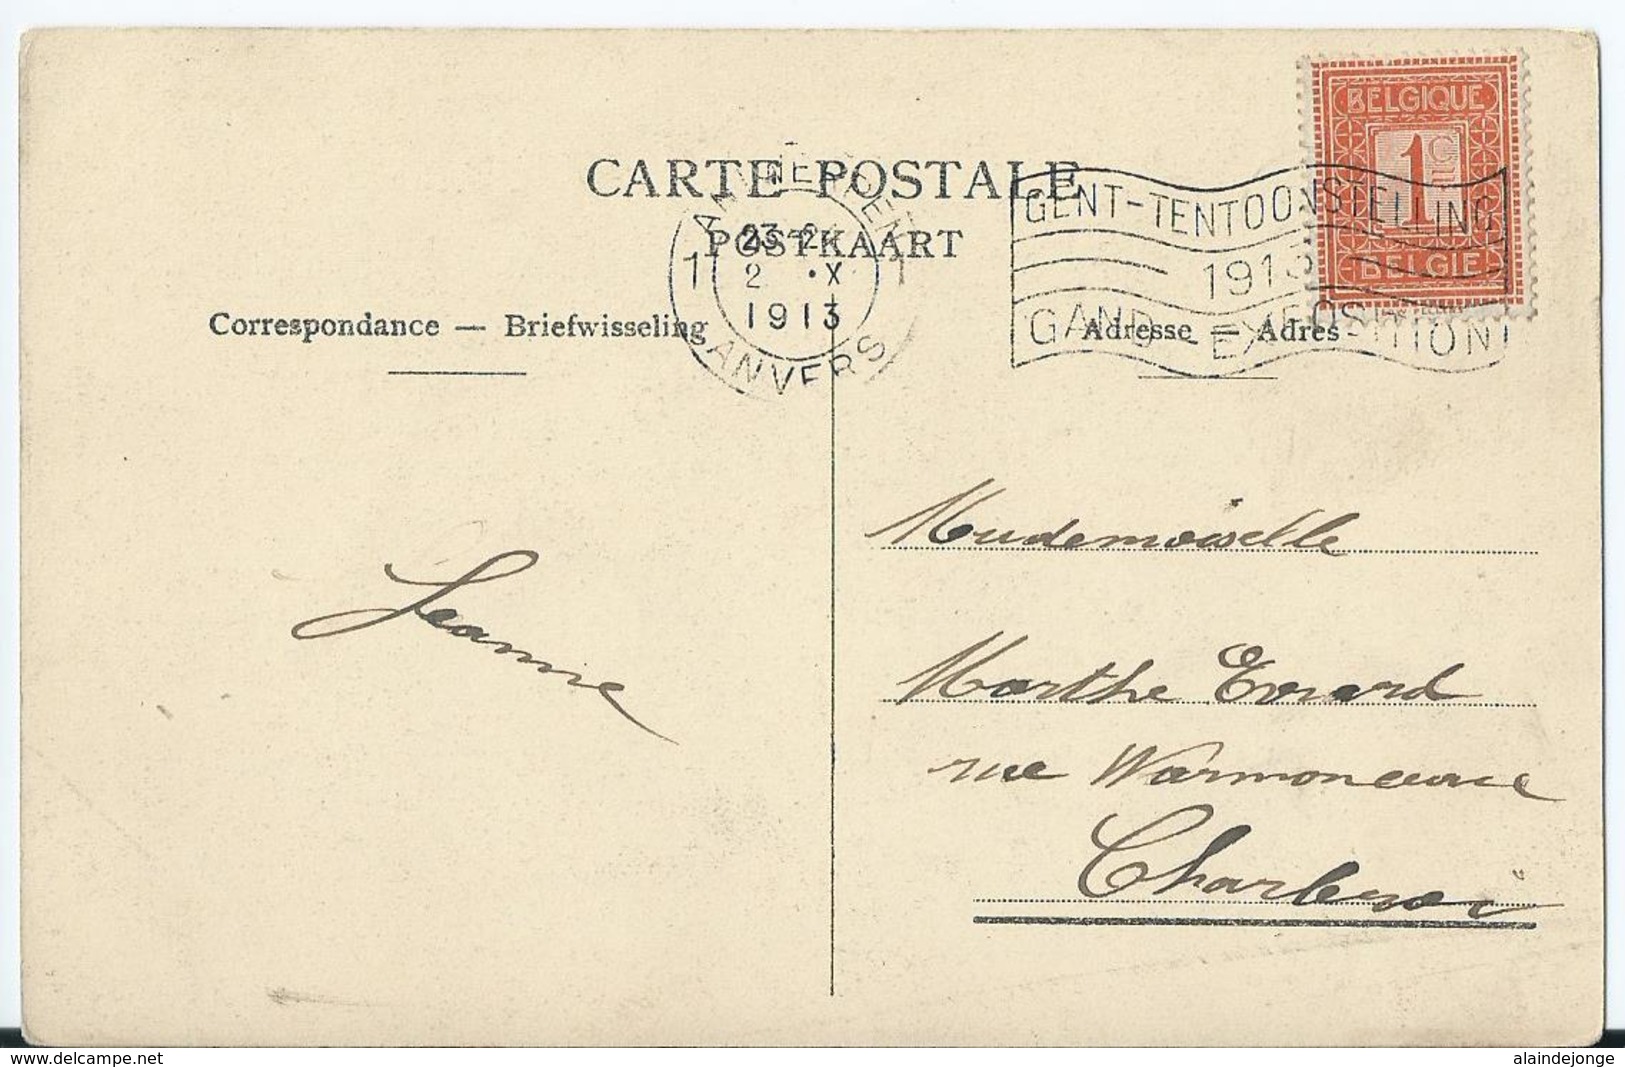 BELGIQUE
1 CE
BELGIË
CARTE POSTALE
POSTKAART
ANTWERPEN
1 23-24 1
2 ·X
1913
ANVERS
GENT-TENTOONSTELLING
1913
GAND-EXPOSITION
Correspondance — Briefwisseling
Adresse — Adres
Mademoiselle
Jeanne
Marthe Evrard
rue
Charleroi
www.delcampe.net
alaindejonge